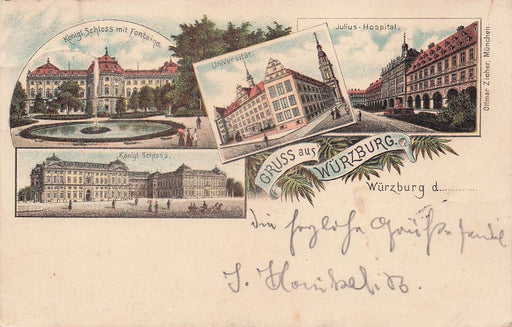 Königl. Schloss mit Fontaine.
Universität.
Julius-Hospital.
Ottmar Zieher, München
Königl. Schloss.
GRUSS aus
WÜRZBURG.
Würzburg d.
die herzliche Grüße